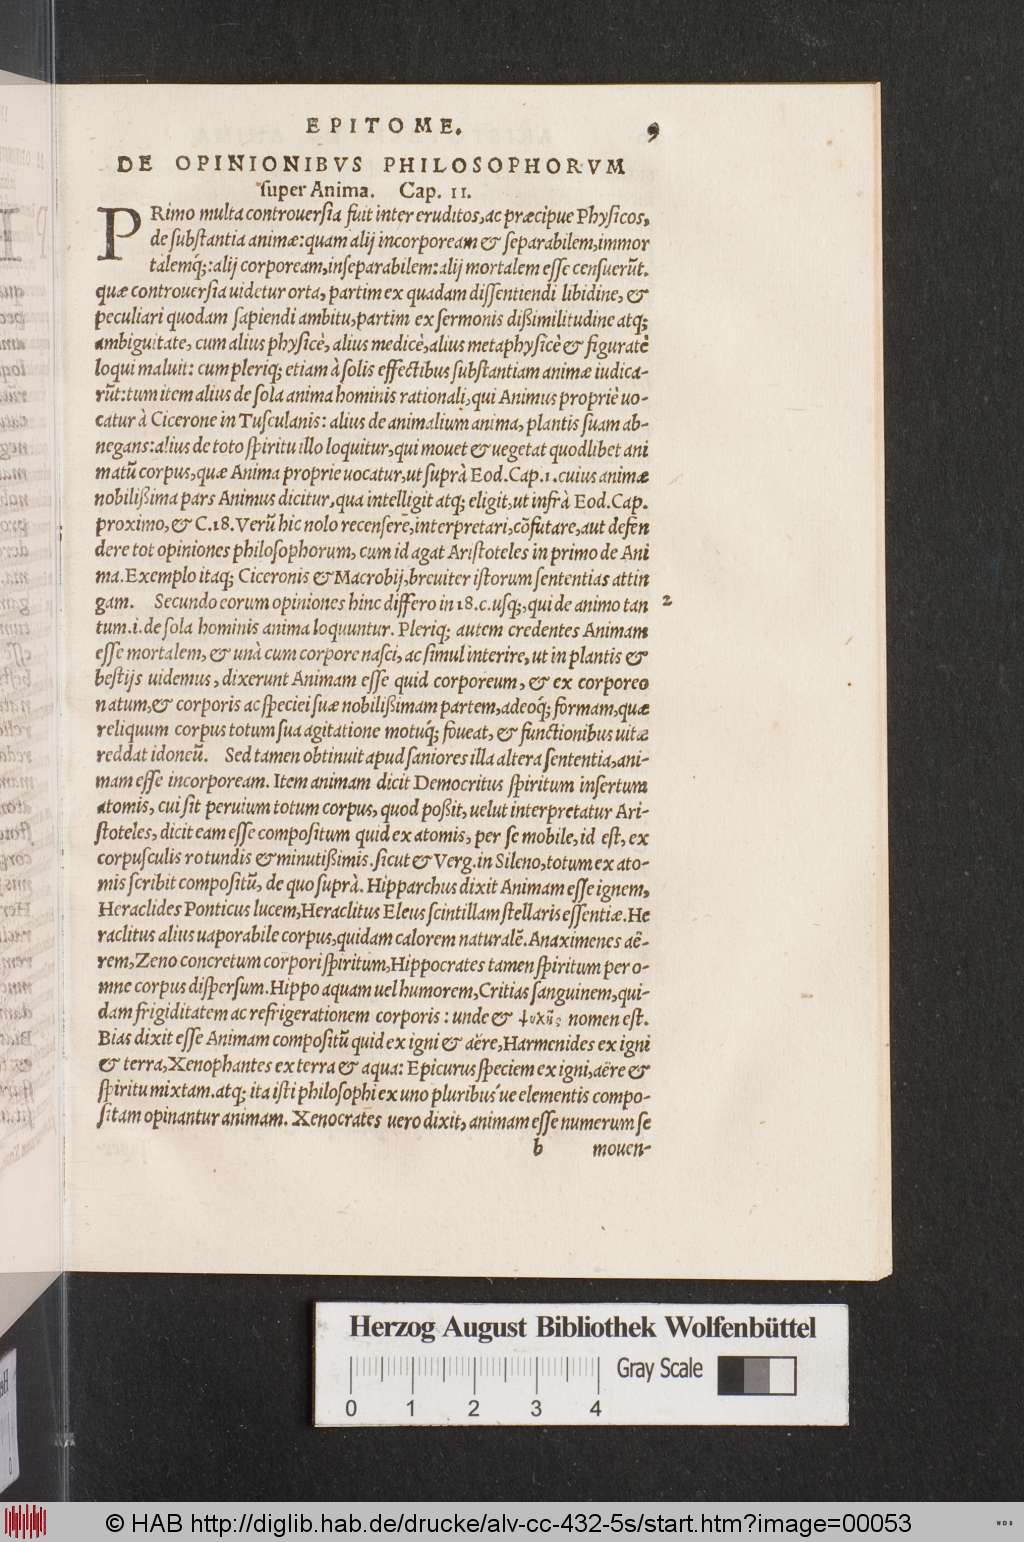 EPITOME. 9
DE OPINIONIBVS PHILOSOPHORVM
super Anima. Cap. II.
PRimo multa controuersia fuit inter eruditos, ac præcipue Physicos,
de substantia animæ: quam alij incorpoream & separabilem, immor
talemq́;: alij corpoream, inseparabilem: alij mortalem esse censuerũt.
quæ controuersia uidetur orta, partim ex quadam dissentiendi libidine, &
peculiari quodam sapiendi ambitu, partim ex sermonis dißimilitudine atq;
ambiguitate, cum alius physicè, alius medicè, alius metaphysicè & figuratè
loqui maluit: cum pleriq; etiam à solis effectibus substantiam animæ iudica-
rũt: tum item alius de sola anima hominis rationali, qui Animus propriè uo-
catur à Cicerone in Tusculanis: alius de animalium anima, plantis suam ab-
negans: alius de toto spiritu illo loquitur, qui mouet & uegetat quodlibet ani
matũ corpus, quæ Anima proprie uocatur, ut suprà Eod. Cap. 1. cuius animæ
nobilißima pars Animus dicitur, qua intelligit atq; eligit, ut infrà Eod. Cap.
proximo, & C. 18. Verũ hic nolo recensere, interpretari, cõfutare, aut defen
dere tot opiniones philosophorum, cum id agat Aristoteles in primo de Ani
ma. Exemplo itaq; Ciceronis & Macrobij, breuiter istorum sententias attin
gam. Secundo eorum opiniones hinc differo in 18. c. usq;, qui de animo tan 2
tum .i. de sola hominis anima loquuntur. Pleriq; autem credentes Animam
esse mortalem, & unà cum corpore nasci, ac simul interire, ut in plantis &
bestijs uidemus, dixerunt Animam esse quid corporeum, & ex corporeo
natum, & corporis ac speciei suæ nobilißimam partem, adeoq́; formam, quæ
reliquum corpus totum sua agitatione motuq́; foueat, & functionibus uitæ
reddat idoneũ. Sed tamen obtinuit apud saniores illa altera sententia, ani-
mam esse incorpoream. Item animam dicit Democritus spiritum insertum
atomis, cui sit peruium totum corpus, quod poßit, uelut interpretatur Ari-
stoteles, dicit eam esse compositum quid ex atomis, per se mobile, id est, ex
corpusculis rotundis & minutißimis. sicut & Verg. in Sileno, totum ex ato-
mis scribit compositũ, de quo suprà. Hipparchus dixit Animam esse ignem,
Heraclides Ponticus lucem, Heraclitus Eleus scintillam stellaris essentiæ. He
raclitus alius uaporabile corpus, quidam calorem naturalẽ. Anaximenes aë-
rem, Zeno concretum corpori spiritum, Hippocrates tamen spiritum per o-
mne corpus dispersum. Hippo aquam uel humorem, Critias sanguinem, qui-
dam frigiditatem ac refrigerationem corporis: unde & nomen est.
Bias dixit esse Animam compositũ quid ex igni & aëre, Harmenides ex igni
& terra, Xenophantes ex terra & aqua: Epicurus speciem ex igni, aëre &
spiritu mixtam. atq; ita isti philosophi ex uno pluribus´ue elementis compo-
sitam opinantur animam. Xenocrates uero dixit, animam esse numerum se
b mouen-
Herzog August Bibliothek Wolfenbüttel
Gray Scale
0 1 2 3 4
© HAB http://diglib.hab.de/drucke/alv-cc-432-5s/start.htm?image=00053